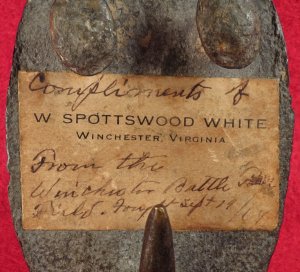 Compliments of
W SPOTTSWOOD WHITE
WINCHESTER, VIRGINIA
From the
Winchester Battle
Field. Fought Sept 19/64